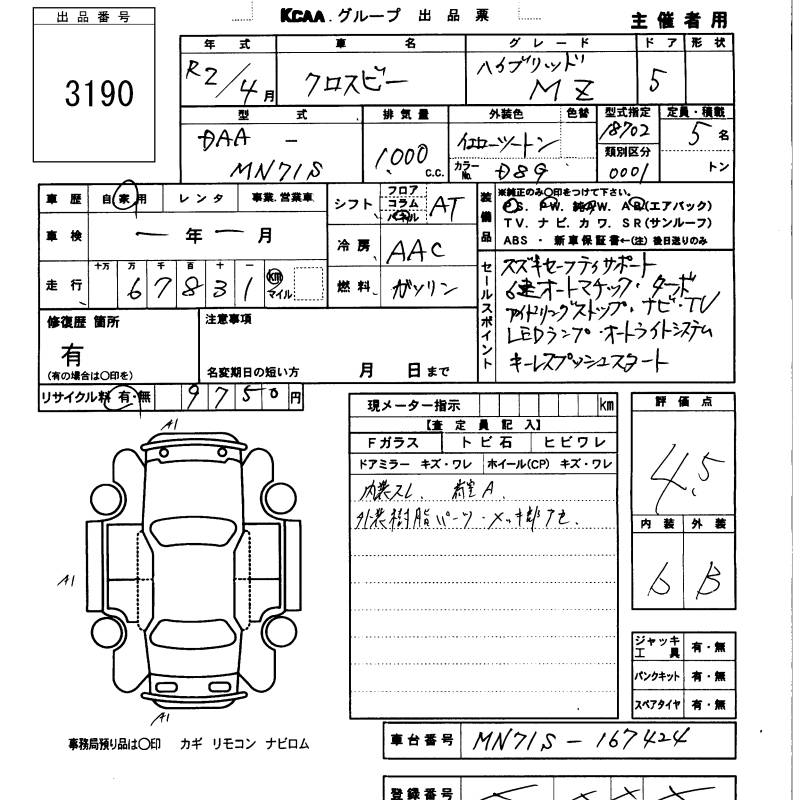 出品番号
3190
KCAA.グループ 出品票
主催者用
年式 車名 グレード ドア 形状
R2/4月 クロスビー ハイブリッド MZ 5
型式 排気量 外装色 色替 型式指定 定員・積載
DAA - MN71S 1,000 C.C. イエローツートン 18702 5名
カラーNo. D8G 類別区分 0001 トン
車歴 自家用 レンタ 事業.営業車
車検 ー年ー月
走行 十万 万 千 百 十 一
67831 km マイル
シフト フロア コラム パネル AT
冷房 AAC
燃料 ガソリン
装備品
※純正のみ○印をつけて下さい。
P.S. P.W. 純アW. A.B(エアバック)
T.V. ナビ. カワ. S.R(サンルーフ)
ABS ・ 新車保証書←(注)後日送りのみ
セールスポイント
スズキセーフティサポート
6速オートマチック・ターボ
アイドリングストップ・ナビ・TV
LEDランプ・オートライトシステム
キーレスプッシュスタート
修復歴 箇所
有
(有の場合は○印を)
注意事項
名変期日の短い方 月 日まで
リサイクル料 有・無 9750円
現メーター指示 km
【査定員記入】
Fガラス トビ石 ヒビワレ
ドアミラー キズ・ワレ ホイール(CP) キズ・ワレ
内装スレ. 荷室A.
外装樹脂パーツ・メッキ部アセ.
評価点
4.5
内装 外装
b B
A1
A1
A1
ジャッキ工具 有・無
パンクキット 有・無
スペアタイヤ 有・無
事務局預り品は○印 カギ リモコン ナビロム
車台番号 MN71S-167424
登録番号